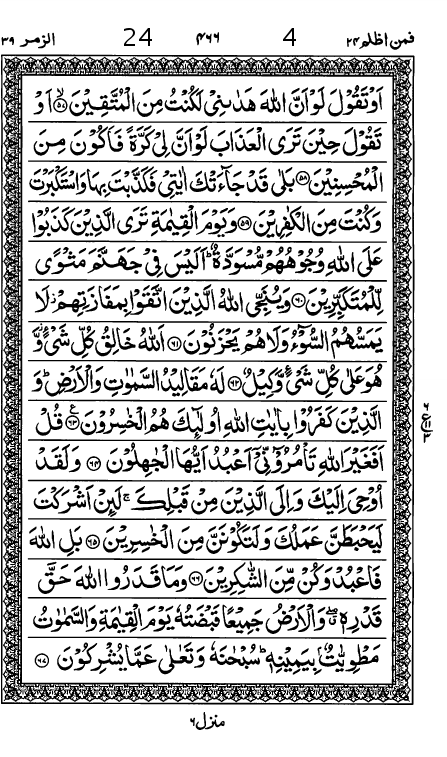 فمن اظلم ٢٤ 4 ٤٦٦ 24 الزمر ٣٩
اَوْ تَقُوْلَ لَوْ اَنَّ اللّٰهَ هَدٰىنِيْ لَكُنْتُ مِنَ الْمُتَّقِيْنَ ۙ﴿٥٧﴾ اَوْ
تَقُوْلَ حِيْنَ تَرَى الْعَذَابَ لَوْ اَنَّ لِيْ كَرَّةً فَاَكُوْنَ مِنَ
الْمُحْسِنِيْنَ ﴿٥٨﴾ بَلٰى قَدْ جَآءَتْكَ اٰيٰتِيْ فَكَذَّبْتَ بِهَا وَاسْتَكْبَرْتَ
وَكُنْتَ مِنَ الْكٰفِرِيْنَ ﴿٥٩﴾ وَيَوْمَ الْقِيٰمَةِ تَرَى الَّذِيْنَ كَذَبُوْا
عَلَى اللّٰهِ وُجُوْهُهُمْ مُّسْوَدَّةٌ ؕ اَلَيْسَ فِيْ جَهَنَّمَ مَثْوًى
لِّلْمُتَكَبِّرِيْنَ ﴿٦٠﴾ وَيُنَجِّي اللّٰهُ الَّذِيْنَ اتَّقَوْا بِمَفَازَتِهِمْ ؗ لَا
يَمَسُّهُمُ السُّوْٓءُ وَلَا هُمْ يَحْزَنُوْنَ ﴿٦١﴾ اَللّٰهُ خَالِقُ كُلِّ شَيْءٍ ؗ وَّ
هُوَ عَلٰى كُلِّ شَيْءٍ وَّكِيْلٌ ﴿٦٢﴾ لَهٗ مَقَالِيْدُ السَّمٰوٰتِ وَالْاَرْضِ ؕ وَ
الَّذِيْنَ كَفَرُوْا بِاٰيٰتِ اللّٰهِ اُولٰٓئِكَ هُمُ الْخٰسِرُوْنَ ﴿٦٣﴾ قُلْ
اَفَغَيْرَ اللّٰهِ تَاْمُرُوْٓنِّيْٓ اَعْبُدُ اَيُّهَا الْجٰهِلُوْنَ ﴿٦٤﴾ وَلَقَدْ
اُوْحِيَ اِلَيْكَ وَاِلَى الَّذِيْنَ مِنْ قَبْلِكَ ۚ لَئِنْ اَشْرَكْتَ
لَيَحْبَطَنَّ عَمَلُكَ وَلَتَكُوْنَنَّ مِنَ الْخٰسِرِيْنَ ﴿٦٥﴾ بَلِ اللّٰهَ
فَاعْبُدْ وَكُنْ مِّنَ الشّٰكِرِيْنَ ﴿٦٦﴾ وَمَا قَدَرُوا اللّٰهَ حَقَّ
قَدْرِهٖ ۖ وَالْاَرْضُ جَمِيْعًا قَبْضَتُهٗ يَوْمَ الْقِيٰمَةِ وَالسَّمٰوٰتُ
مَطْوِيّٰتٌۢ بِيَمِيْنِهٖ ؕ سُبْحٰنَهٗ وَتَعٰلٰى عَمَّا يُشْرِكُوْنَ ﴿٦٧﴾
منزل ٦